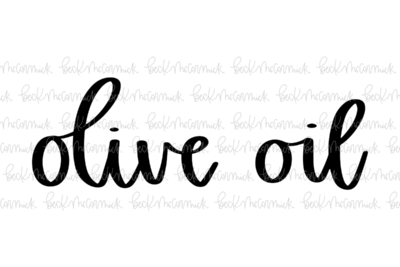 olive oil